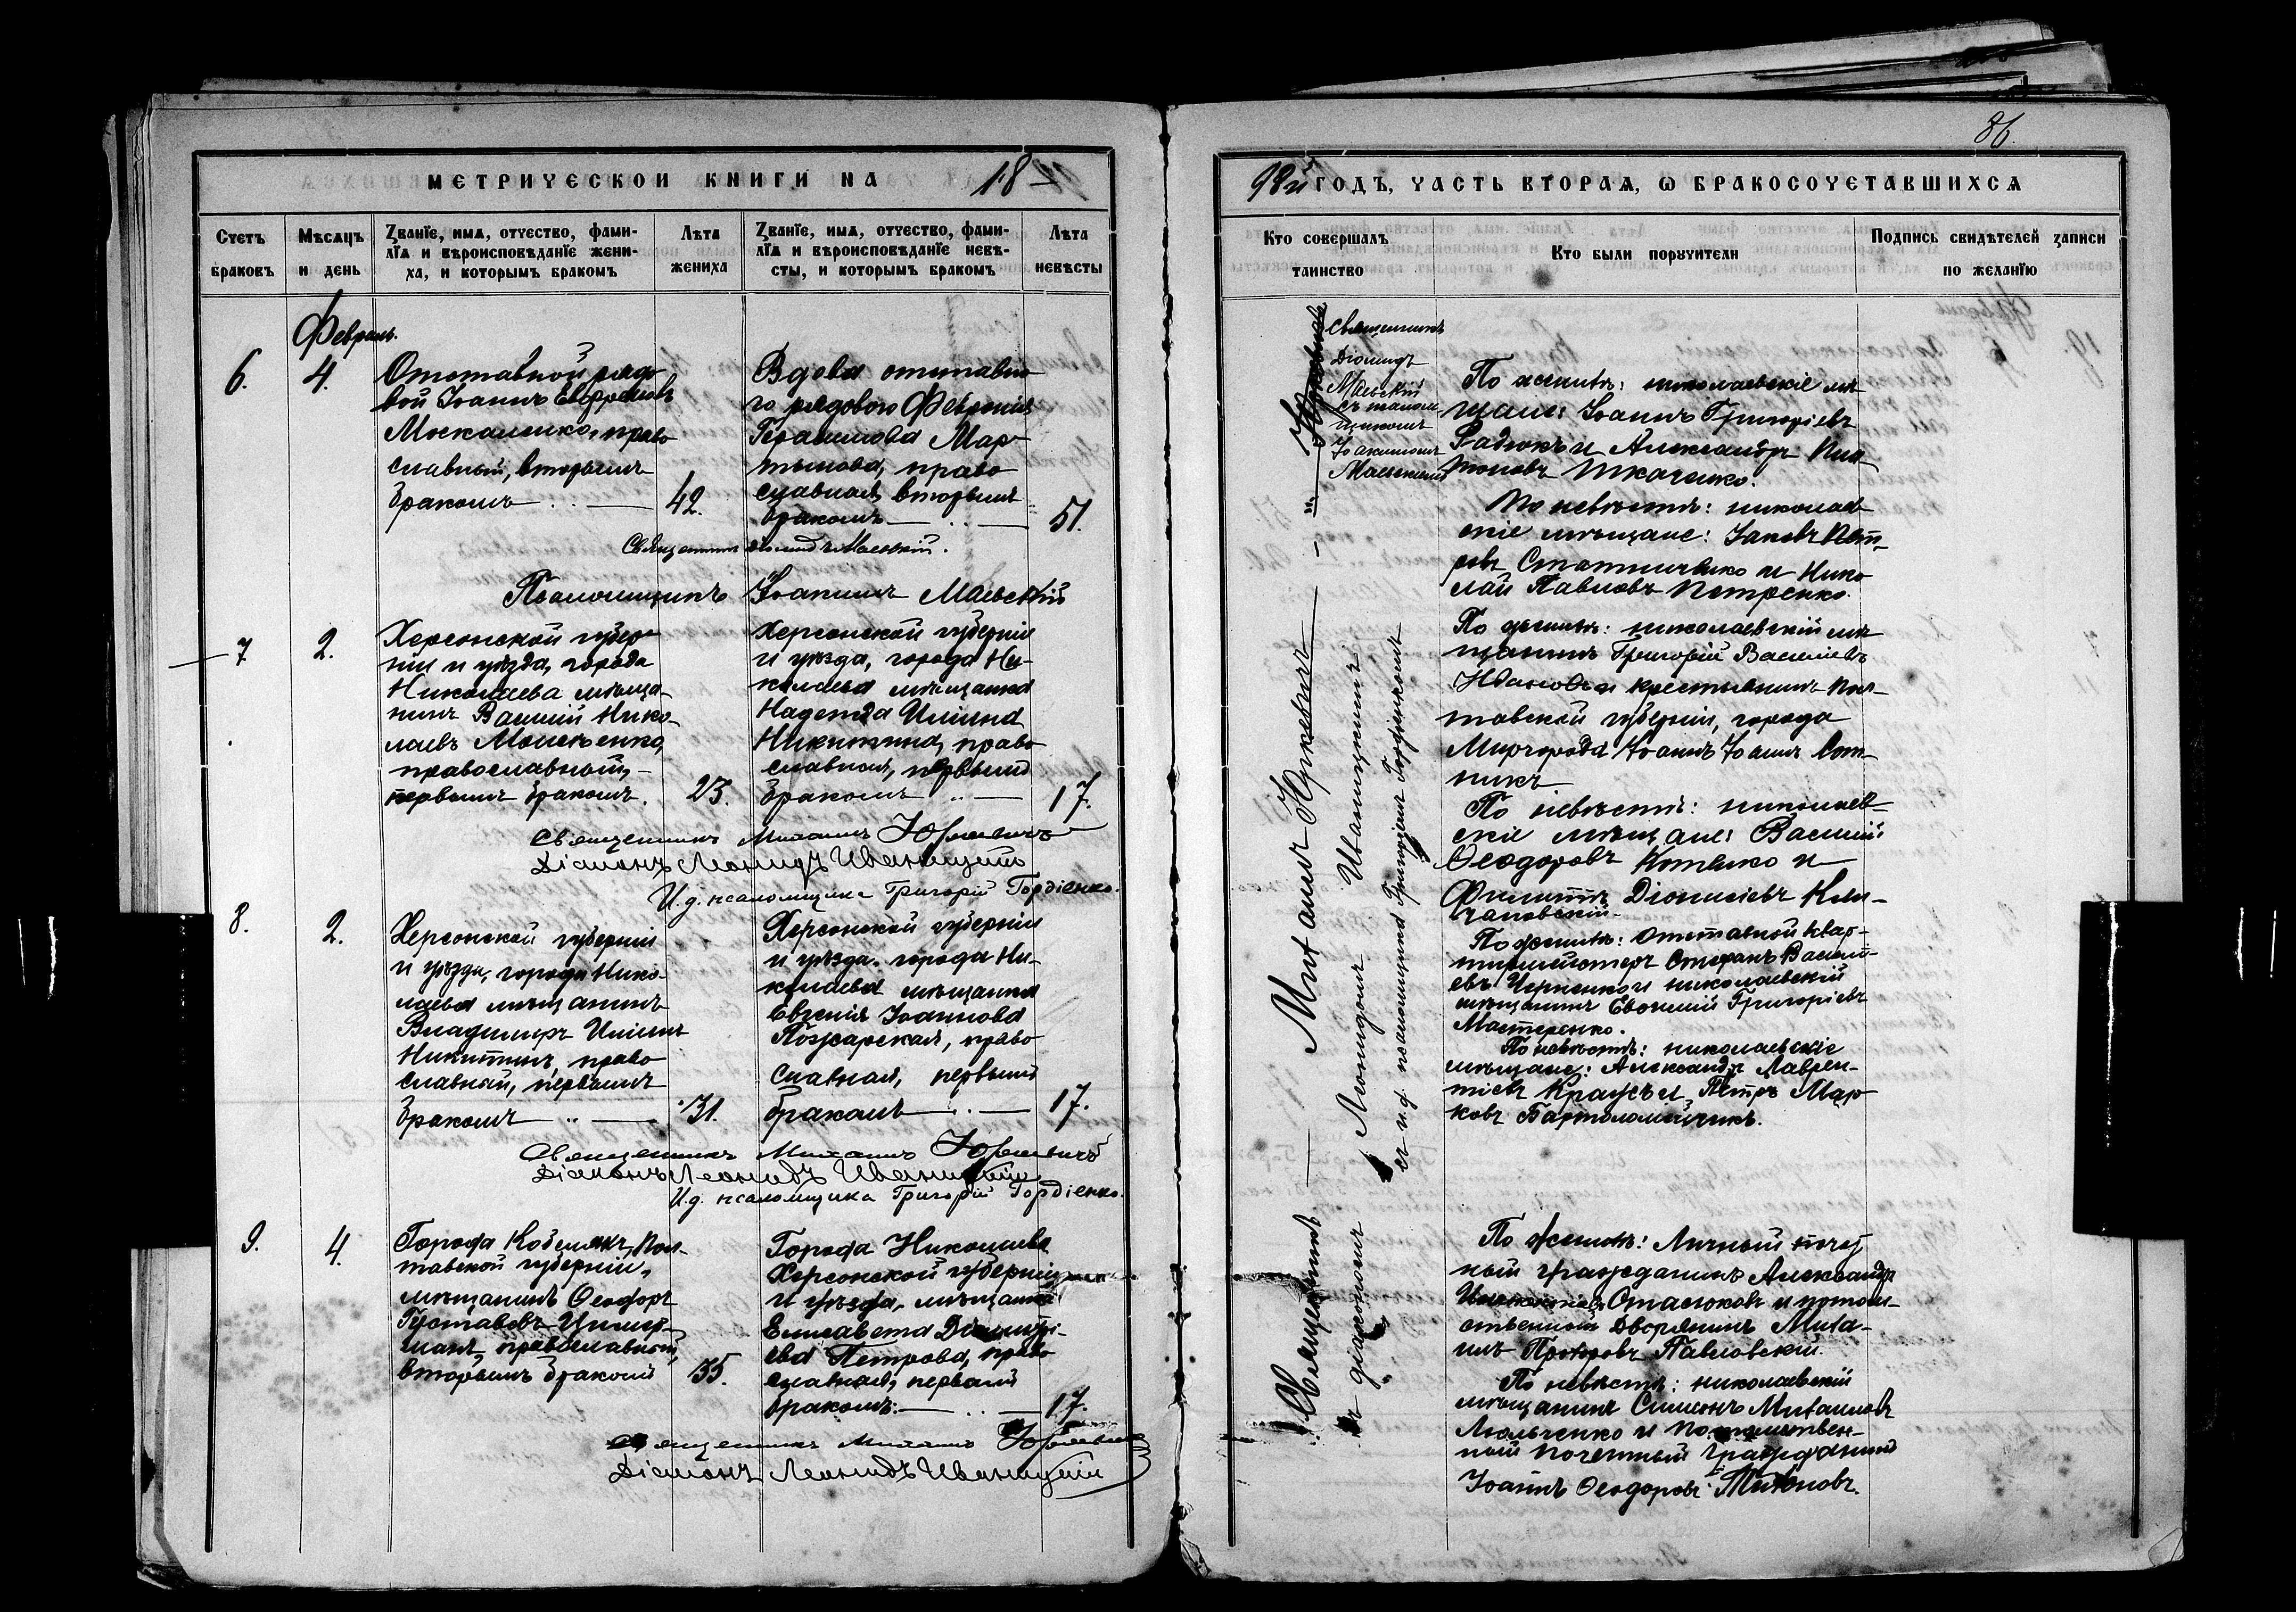 МЕТРИЧЕСКОЙ КНИГИ НА 18
Счетъ браковъ
Мѣсяцъ и день
Званіе, имя, отчество, фами-
лія и вѣроисповѣданіе жени-
ха, и которымъ бракомъ
Лѣта жениха
Званіе, имя, отчество, фами-
лія и вѣроисповѣданіе невѣ-
сты, и которымъ бракомъ
Лѣта невѣсты
Февраль.
6.
4.
Отставной рядо
вой Іоаннъ Евфремовъ
Москаленко, право
славный, вторымъ
бракомъ
42.
Вдова отставно
го рядового Феврония
Герасимова Мар
тынова, право
славная, вторымъ
бракомъ
51.
Священникъ Діомидъ Маевскій.
Псаломщикъ Іоакимъ Маевскій
7
2.
Херсонской губер
ніи и уѣзда, города
Николаева мѣща-
нинъ Василій Нико
лаевъ Моисеенко,
православный,
первымъ бракомъ.
23.
Херсонской губерніи
и уѣзда, города Ни-
колаева мѣщанка
Надежда Ильина
Никитина, право
славная, первымъ
бракомъ
17.
Священникъ Михаилъ Юркевичъ
Діаконъ Леонидъ Иваницкій
И.д. псаломщика Григорій Гордіенко.
8.
2.
Херсонской губерніи
и уѣзда, города Нико-
лаева мѣщанинъ
Владимиръ Ильинъ
Никитинъ, право
славный, первымъ
бракомъ
31.
Херсонской губерніи
и уѣзда, города Ни-
колаева мѣщанка
Евгенія Іоаннова
Пожарская, право
славная, первымъ
бракомъ
17.
Священникъ Михаилъ Юркевичъ
Діаконъ Леонидъ Иваницкій
И.д. псаломщика Григорій Гордіенко.
9.
4.
Города Кобелякъ, Пол-
тавской губерніи,
мѣщанинъ Ѳеодоръ
Густавовъ
православный,
вторымъ бракомъ
35.
Города Николаева
Херсонской губерніи
и уѣзда, мѣщанка
Елисавета Димитрі-
ева Петрова, право
славная, первымъ
бракомъ.
17.
Священникъ Михаилъ Юркевичъ
Діаконъ Леонидъ Иваницкій
86.
98й ГОДЪ, ЧАСТЬ ВТОРАЯ, О БРАКОСОЧЕТАВШИХСЯ
Кто совершалъ
таинство
Кто были поручители
Подпись свидѣтелей записи
по желанію
Священникъ
Діомидъ
Маевскій
съ псалом
щикомъ
Іоакимомъ
Маевскимъ
По женихѣ: николаевскіе мѣ
щане: Іоаннъ Григоріевъ
Радюкъ и Александръ Пла
тоновъ Ткаченко.
По невѣстѣ: николаев
скіе мѣщане: Іаковъ Пет
ровъ и Нико
лай Павловъ Петренко.
Священникъ Михаилъ Юркевичъ
съ діакономъ Леонидомъ Иваницкимъ
и и.д. псаломщика Григоріемъ Гордіенкомъ
По женихѣ: николаевскій мѣ
щанинъ Григорій Васильевъ
Ивановъ и крестьянинъ Пол-
тавской губерніи, города
Миргорода Іоаннъ Іоанн Сот-
никъ
По невѣстѣ: николаев-
скіе мѣщане: Василій
Ѳеодоровъ Котенко и
Филиппъ Діонисіевъ
По женихѣ: Отставной квар-
тирмейстеръ Стефанъ Василі-
евъ Черненко и николаевскій
мѣщанинъ Евѳимій Григоріевъ
Мастеренко.
По невѣстѣ: николаевскіе
мѣщане: Александръ Лаврен-
тіевъ Краусъ и Петръ Мар
ковъ Бартоломейчикъ.
По женихѣ: Личный почет
ный гражданинъ Александръ
Стасюковъ и потом-
ственный дворянинъ Миха-
илъ Павловскій.
По невѣстѣ: николаевскій
мѣщанинъ Симеонъ Михаиловъ
Люльченко и потомствен-
ный почетный гражданинъ
Іоаннъ Ѳеодоровъ Тихоновъ.